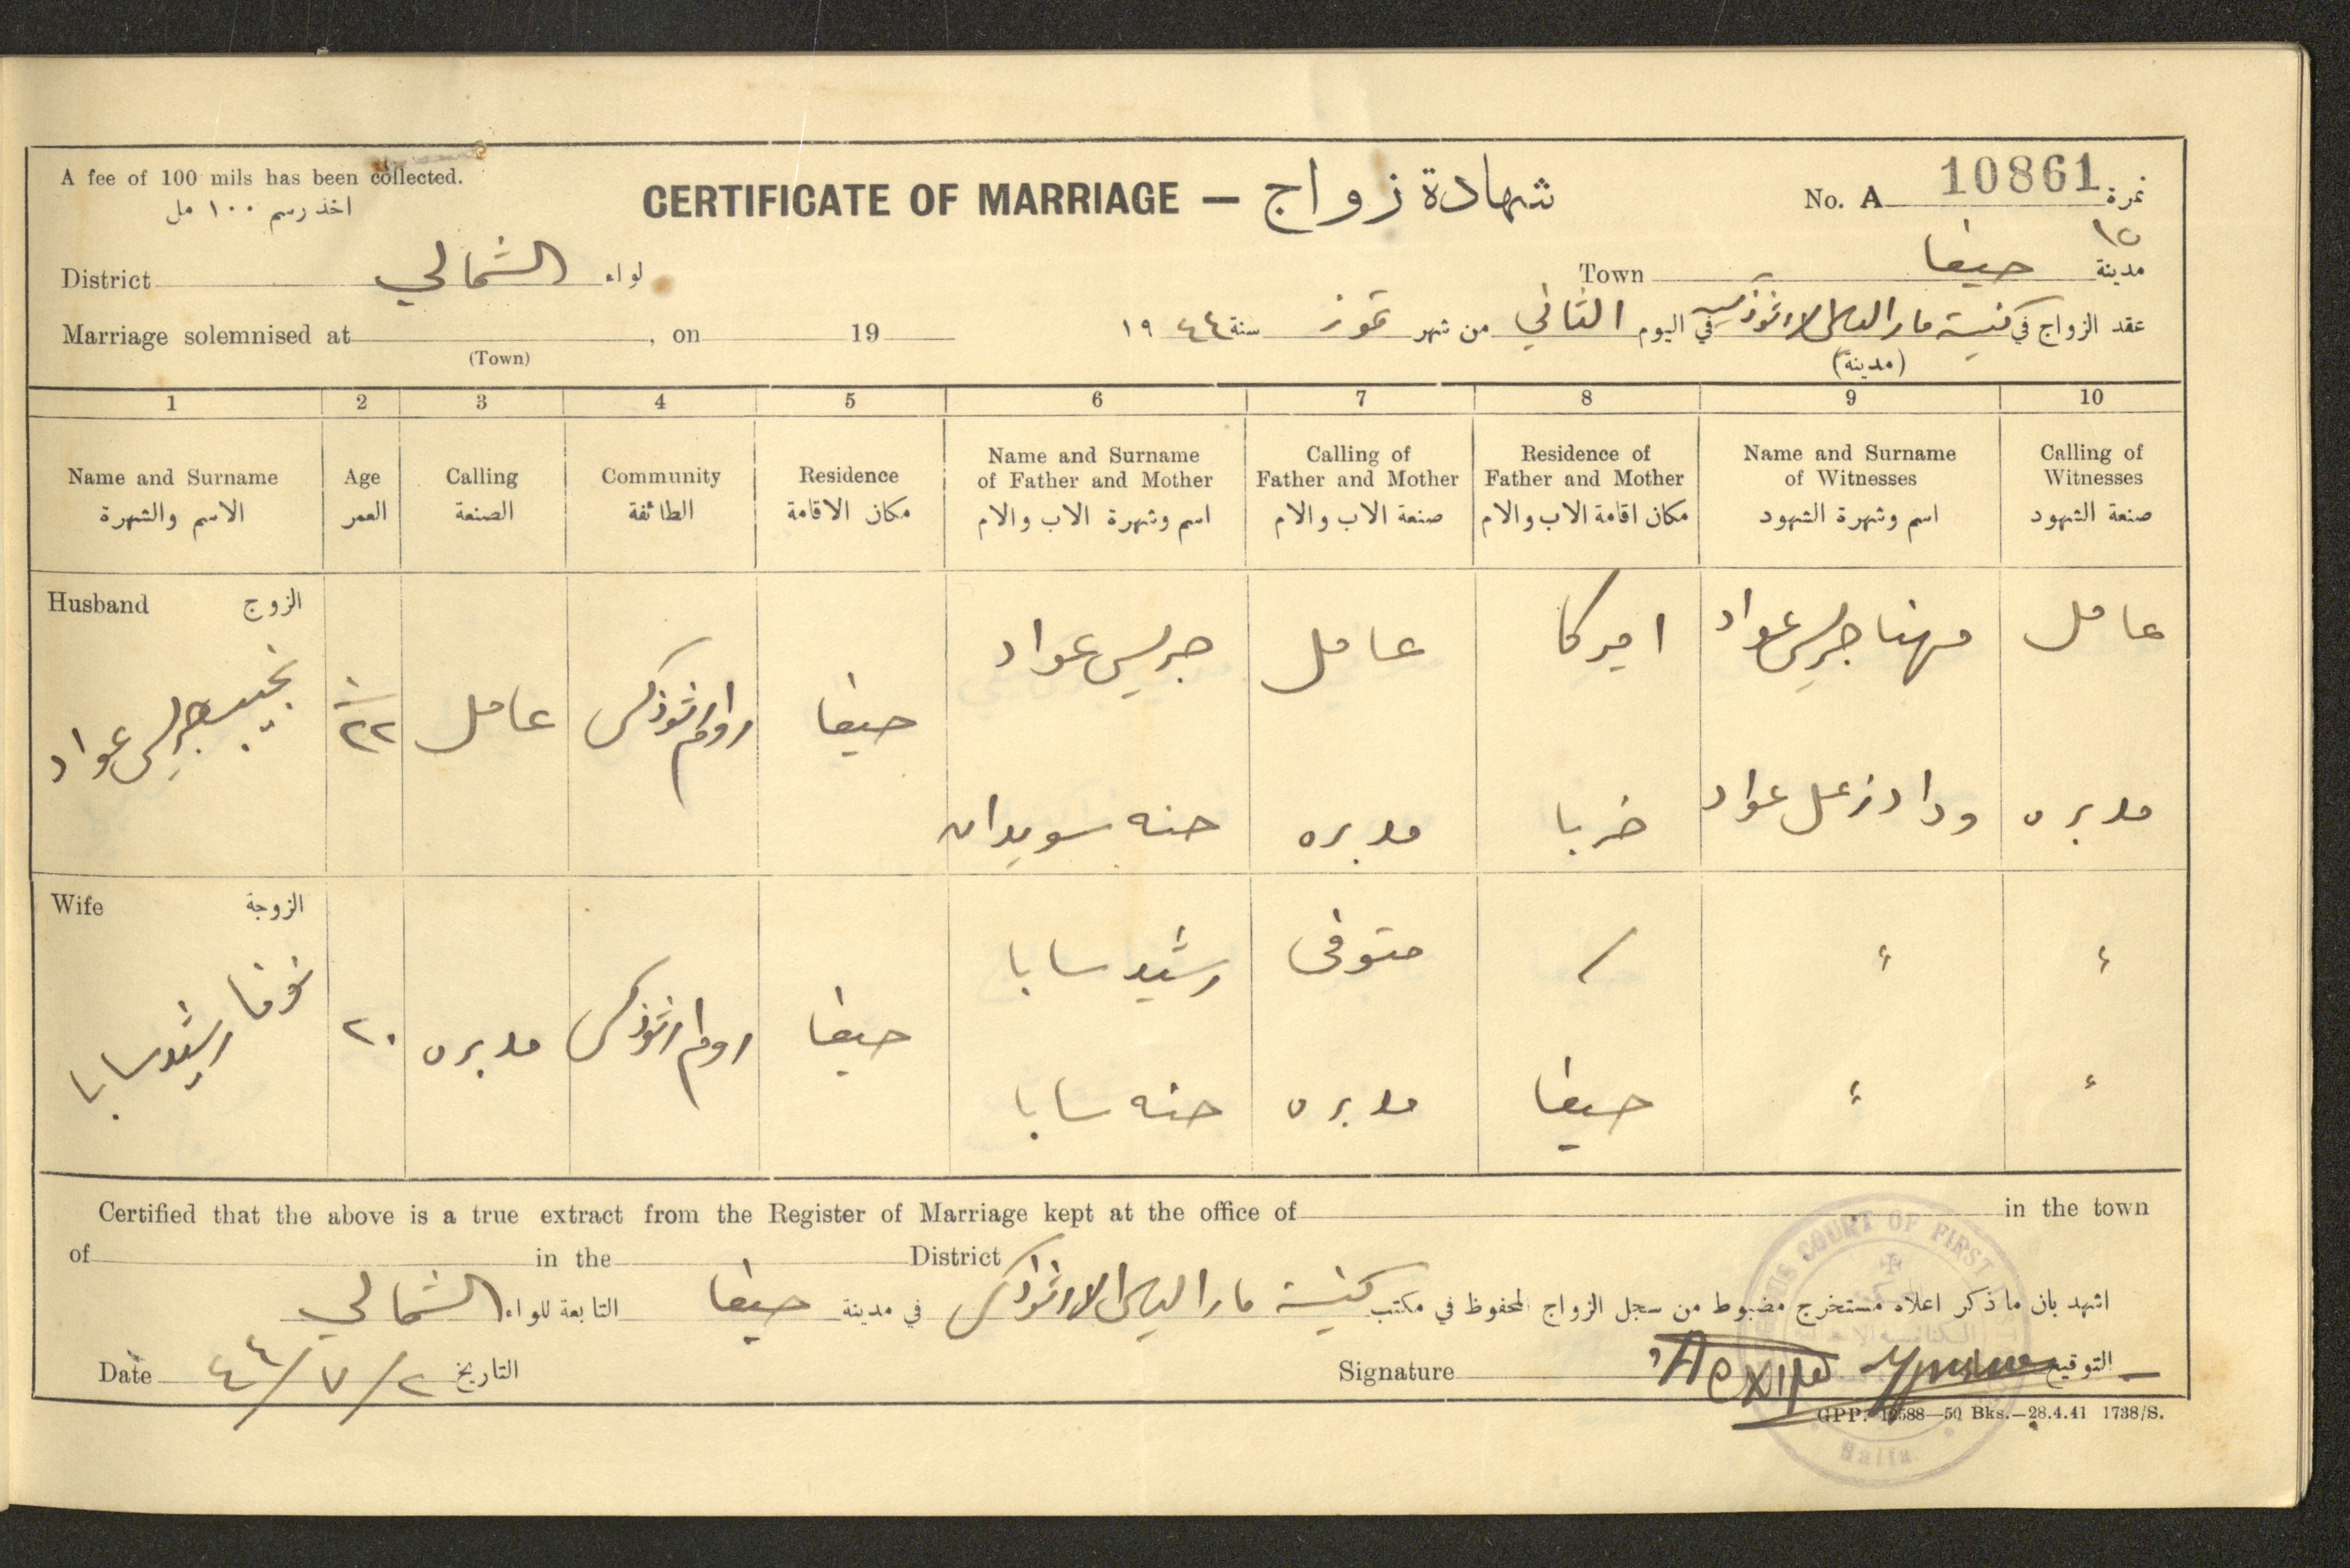 A fee of 100 mils has been collected.
اخذ رسم ١٠٠ مل
CERTIFICATE OF MARRIAGE — شهادة زواج
No. A 10861 نمرة
١٥
District الشمالي لواء
Town حيفا مدينة
Marriage solemnised at , on 19
(Town)
عقد الزواج في كنيسة مار الياس الارثوذكسية في اليوم الثاني من شهر تموز سنة ١٩٤٤
(مدينة)
1 2 3 4 5 6 7 8 9 10
Name and Surname
الاسم والشهرة
Age
العمر
Calling
الصنعة
Community
الطائفة
Residence
مكان الاقامة
Name and Surname
of Father and Mother
اسم وشهرة الاب والام
Calling of
Father and Mother
صنعة الاب والام
Residence of
Father and Mother
مكان اقامة الاب والام
Name and Surname
of Witnesses
اسم وشهرة الشهود
Calling of
Witnesses
صنعة الشهود
Husband الزوج
نجيب جريس عواد
٢٢
عامل
روم ارثوذكس
حيفا
جريس عواد
حنه سويدان
عامل
مدبره
اميركا
خربا
مهنا جريس عواد
وداد زعل عواد
عامل
مدبره
Wife الزوجة
نوفا
رشيد سابا
٢٠
مدبره
روم ارثوذكس
حيفا
رشيد سابا
حنه سابا
متوفى
مدبره
/
حيفا
ء
ء
ء
ء
Certified that the above is a true extract from the Register of Marriage kept at the office of in the town
of in the District
اشهد بان ما ذكر اعلاه مستخرج مضبوط من سجل الزواج المحفوظ في مكتب كنيسة مار الياس الارثوذكس في مدينة حيفا التابعة للواء الشمالي
Date ٤٤/٧/٢ التاريخ
Signature التوقيع
GPP. 10588—50 Bks.—28.4.41 1738/S.
COURT OF FIRST
Haifa